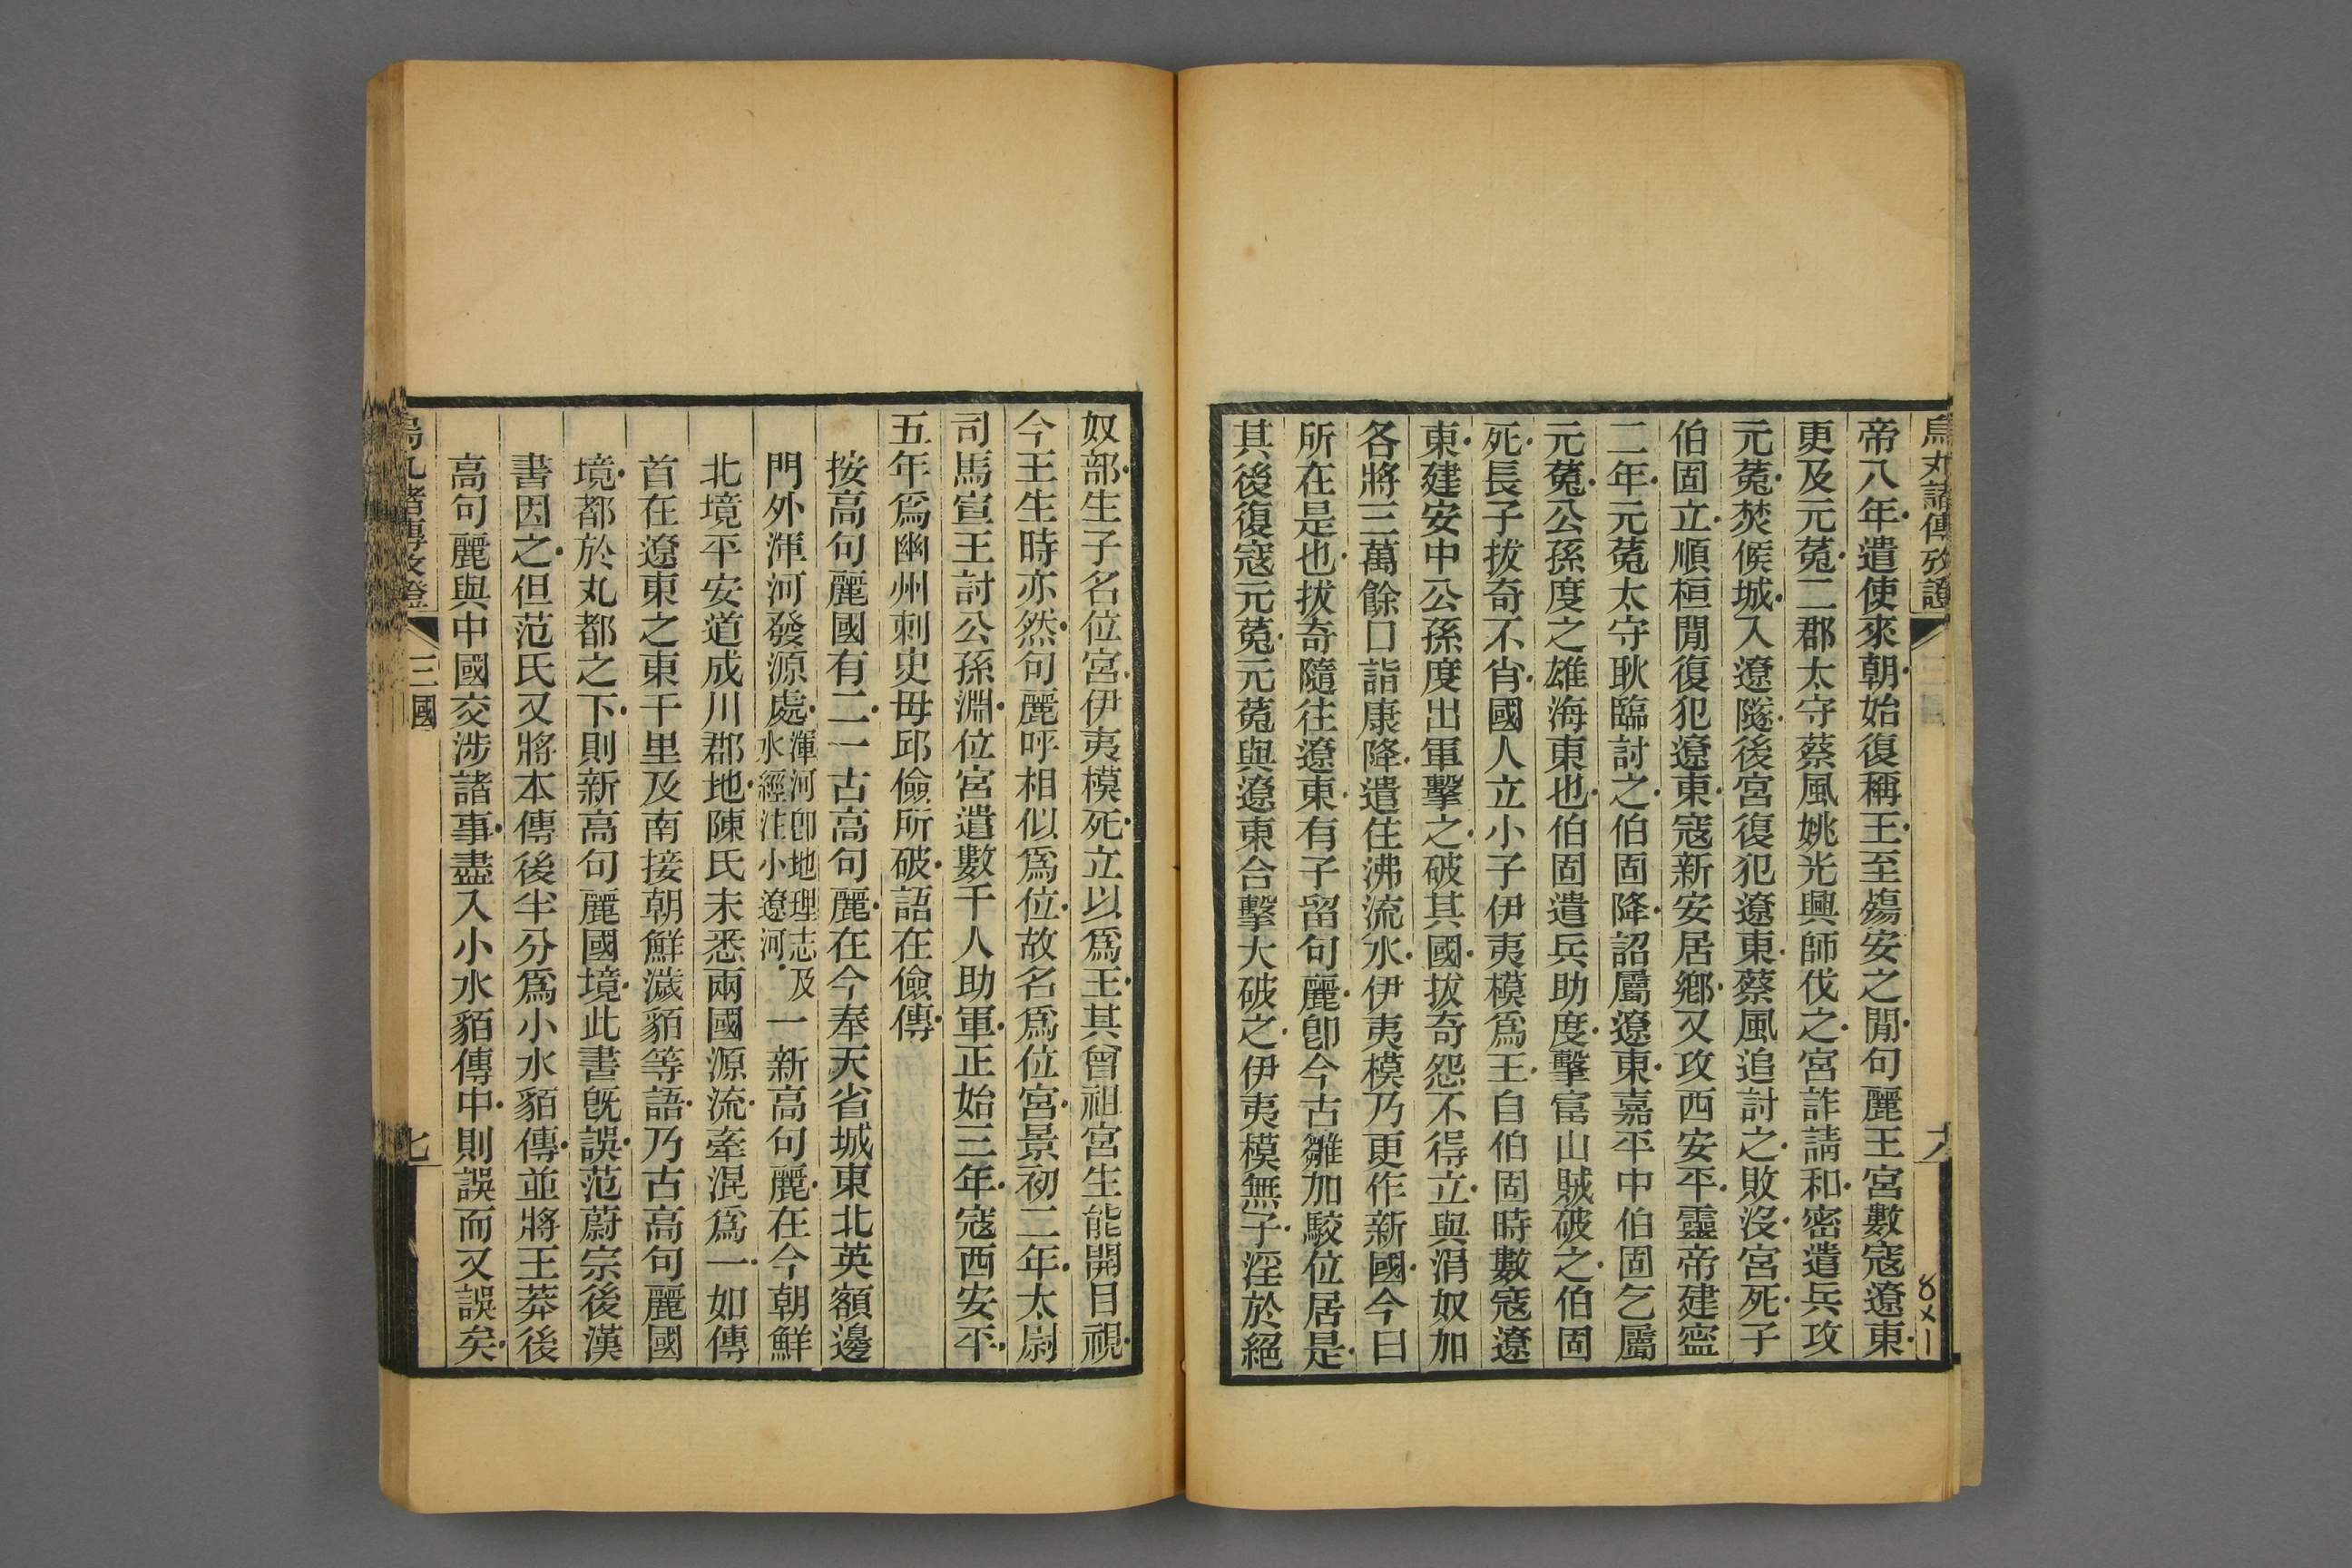 烏丸諸傳攷證
六
8×1
帝八年遣使來朝始復稱王至殤安之閒句麗王宮數寇遼東
更及元菟二郡太守蔡風姚光興師伐之宮詐請和密遣兵攻
元菟焚候城入遼隧後宮復犯遼東蔡風追討之敗沒宮死子
伯固立順桓閒復犯遼東寇新安居鄉又攻西安平靈帝建寧
二年元菟太守耿臨討之伯固降詔屬遼東嘉平中伯固乞屬
元菟公孫度之雄海東也伯固遣兵助度擊富山賊破之伯固
死長子拔奇不肖國人立小子伊夷模為王自伯固時數寇遼
東建安中公孫度出軍擊之破其國拔奇怨不得立與涓奴加
各將三萬餘口詣康降遣住沸流水伊夷模乃更作新國今日
所在是也拔奇隨往遼東有子留句麗卽今古雛加駮位居是
其後復寇元菟元菟與遼東合擊大破之伊夷模無子淫於絕
奴部生子名位宮伊夷模死立以爲王其曾祖宮生能開目視
今王生時亦然句麗呼相似爲位故名爲位宮景初二年太尉
司馬宣王討公孫淵位宮遣數千人助軍正始三年寇西安平
五年爲幽州刺史毋邱儉所破語在儉傳
按高句麗國有二一古高句麗在今奉天省城東北英額邊
門外渾河發源處渾河卽地理志及水經注小遼河一新高句麗在今朝鮮
北境平安道成川郡地陳氏未悉兩國源流牽混爲一如傳
首在遼東之東千里及南接朝鮮濊貊等語乃古高句麗國
境都於丸都之下則新高句麗國境此書旣誤范蔚宗後漢
書因之但范氏又將本傳後半分爲小水貊傳並將王莽後
高句麗與中國交涉諸事盡入小水貊傳中則誤而又誤矣
烏丸諸傳攷證
三國
七